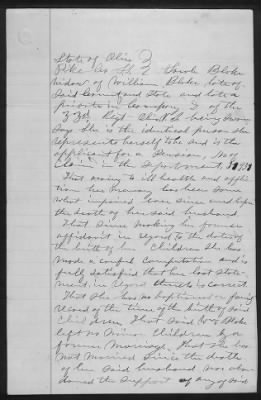 State of Ohio
Pike Co. SS Sarah Blake
Widow of William Blake late of
Said County and State and late a
private in Company I of the
33rd Regt Ohio V. I. being sworn
Says She is the identical person She
represents herself to be and is the
applicant for a Pension, No of
Claim in the Department
That owing to ill health and afflic
tion her memory has been some
what impaired ever since and before
the death of her said husband
That Since making her former
affidavit in regard to the dates of
the birth of her Children She has
made a careful Computation and is
fully satisfied that her last State-
ment in regard thereto is correct
That She has no baptismal or family
record of the time of the birth of said
Children, That Said Wm Blake
left no Minor Children by a
former Marriage. That She has
not married Since the death
of her Said husband nor aban
doned the Support of any of said